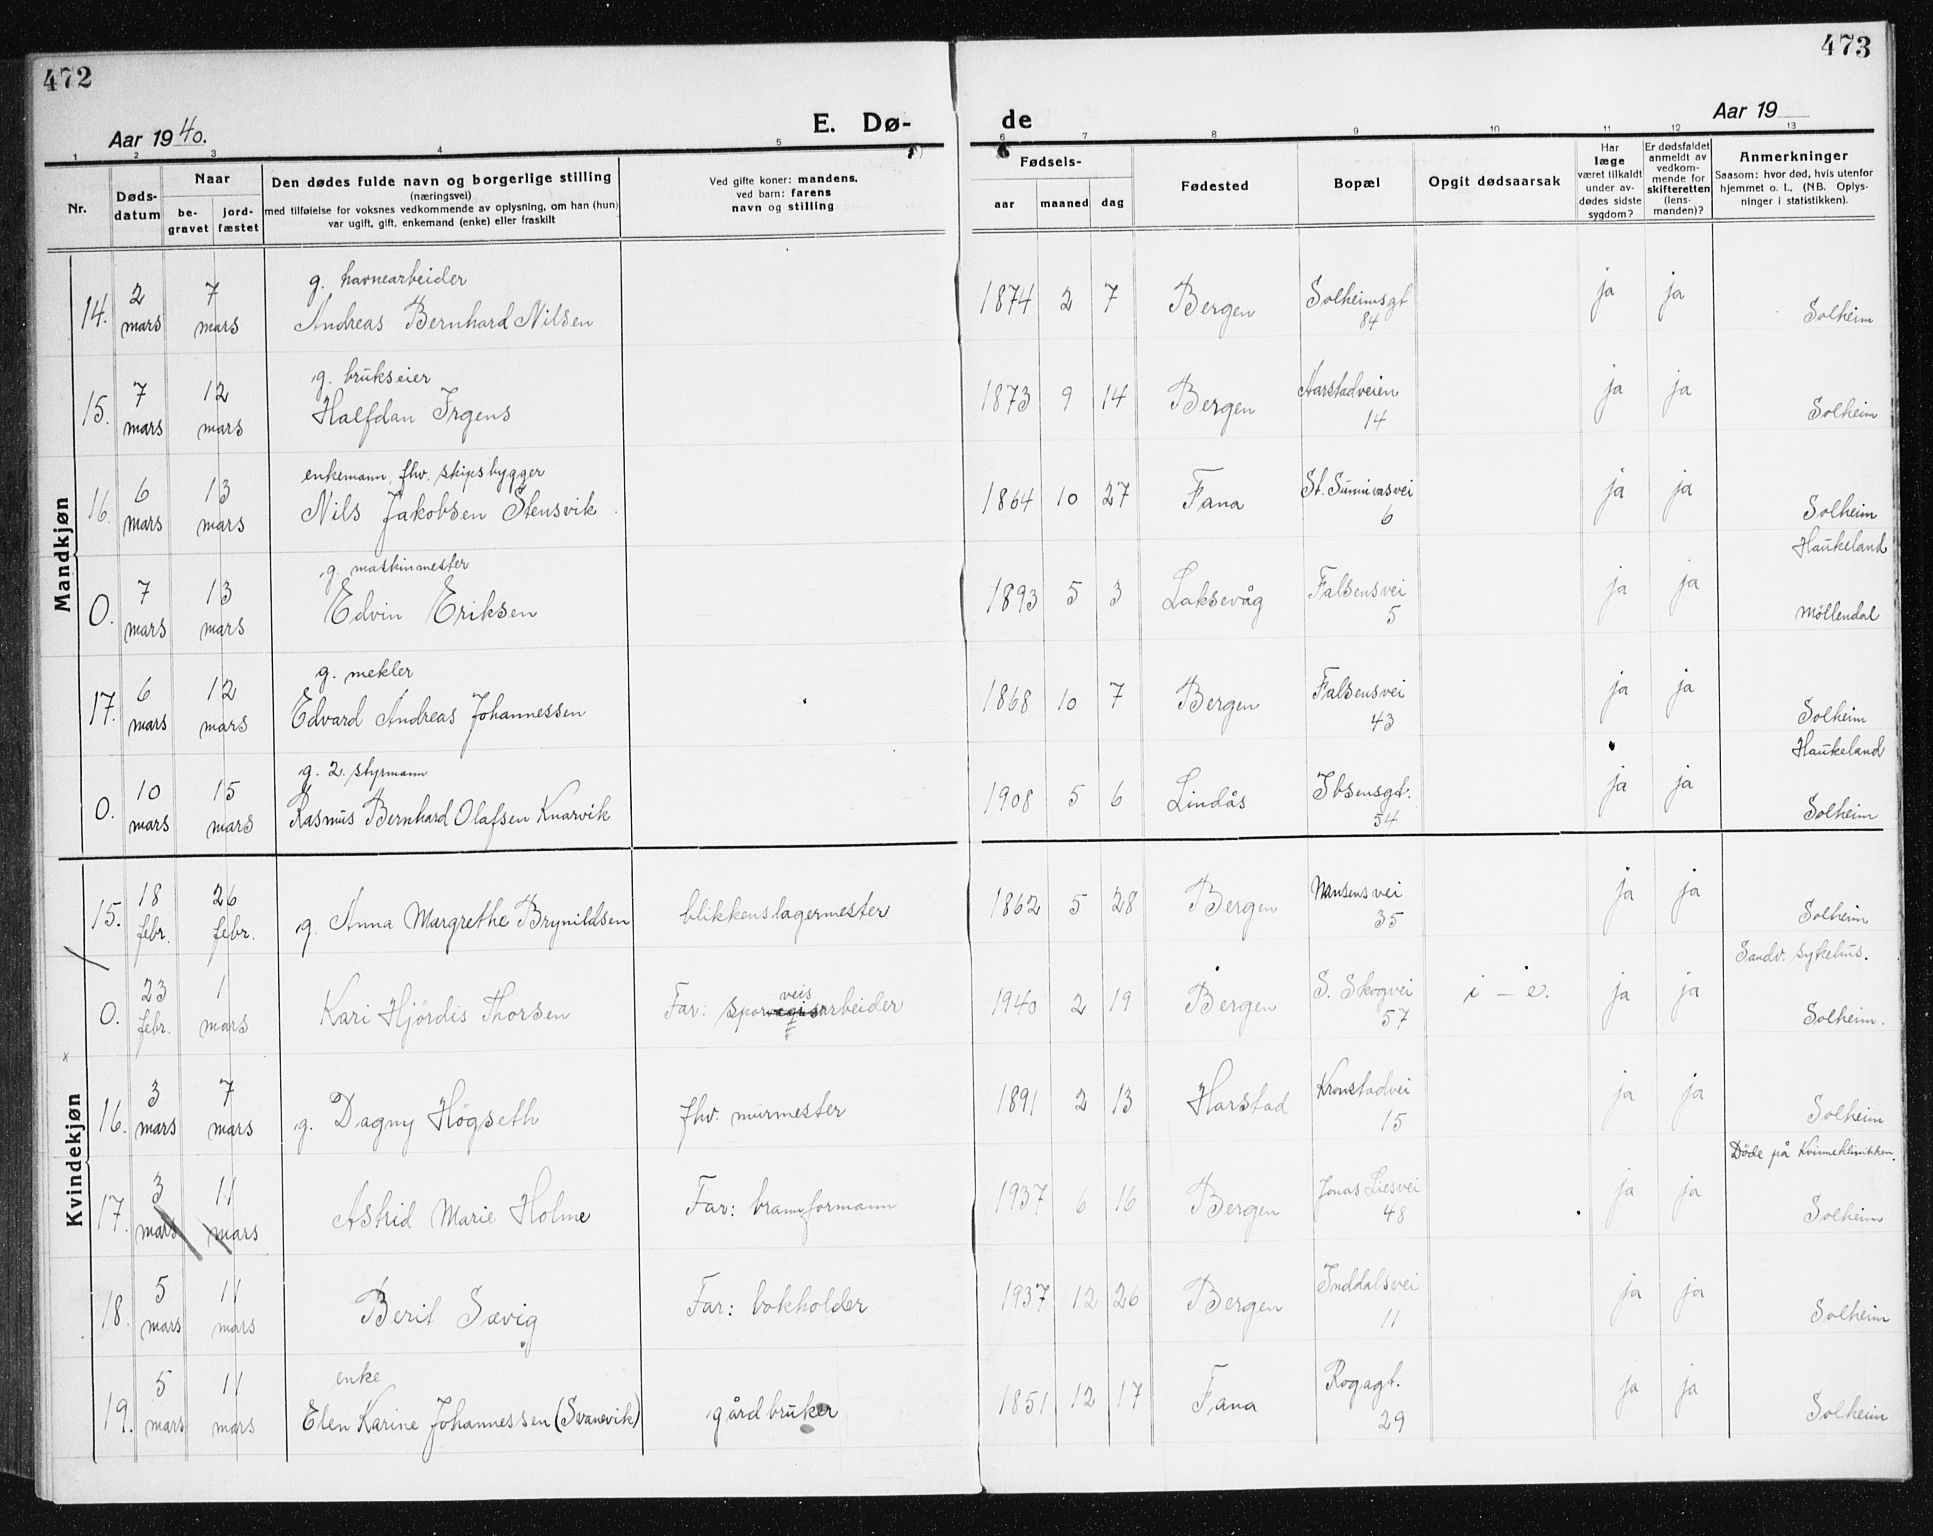 472
473
Aar 1940.
E. Dø-
de
Aar 19
1 2 3 4 5 6 7 8 9 10 11 12 13
Nr.
Døds-
datum
Naar
be-
gravet
jord-
fæstet
Den dødes fulde navn og borgerlige stilling
(næringsvei)
med tilføielse for voksnes vedkommende av oplysning, om han (hun)
var ugift, gift, enkemand (enke) eller fraskilt
Ved gifte koner: mandens,
ved barn: farens
navn og stilling
Fødsels-
aar maaned dag
Fødested
Bopæl
Opgit dødsaarsak
Har
læge
været tilkaldt
under av-
dødes sidste
sygdom?
Er dødsfaldet
anmeldt av
vedkom-
mende for
skifteretten
(lens-
manden)?
Anmerkninger
Saasom: hvor død, hvis utenfor
hjemmet o. l., (NB. Oplys-
ninger i statistikken).
Mandkjøn
g. havnearbeider
14. 2 mars 7 mars Andreas Bernhard Nilsen 1874 2 7 Bergen Solheimsgt 84 ja ja Solheim
g. brukseier
15. 7 mars 12 mars Halfdan Irgens 1873 9 14 Bergen Aarstadveien 14 ja ja Solheim
enkemann, fhv. skipsbygger
16. 6 mars 13 mars Nils Jakobsen Stensvik 1864 10 27 Fana St. Sunnivasvei 6 ja ja Solheim
g. maskinmester Haukeland
0. 7 mars 13 mars Edvin Eriksen 1893 5 3 Laksevåg Falsensvei 5 ja ja Möllendal
g. mekler
17. 6 mars 12 mars Edvard Andreas Johannessen 1868 10 7 Bergen Falsensvei 43 ja ja Solheim
g. 2. styrmann Haukeland
0. 10 mars 15 mars Rasmus Bernhard Olafsen Knarvik 1908 5 6 Lindås Ibsensgt. 54 ja ja Solheim
Kvindekjøn
15. 18 febr. 26 febr. g. Anna Margrethe Brynildsen blikkenslagermester 1862 5 28 Bergen Nansensvei 35 ja ja Solheim
Sandv. sykehus.
0. 23 febr. 1 mars Kari Hjördis Thorsen Far: sporveisarbeider 1940 2 19 Bergen S. Skogvei 57 i - e. ja ja Solheim.
x
16. 3 mars 7 mars g. Dagny Högseth fhv. murmester 1891 2 13 Harstad Kronstadvei 15 ja ja Solheim
Döde på Kvinneklinikken.
17. 3 mars 11 mars Astrid Marie Holme Far: formann 1937 6 16 Bergen Jonas Liesvei 48 ja ja Solheim
18. 5 mars 11 mars Berit Sævig Far: bokholder 1937 12 26 Bergen Inddalsvei 11 ja ja Solheim
enke
19. 5 mars 11 mars Elen Karine Johannessen (Svanevik) gårdbruker 1851 12 17 Fana Rogagt. 29 ja ja Solheim